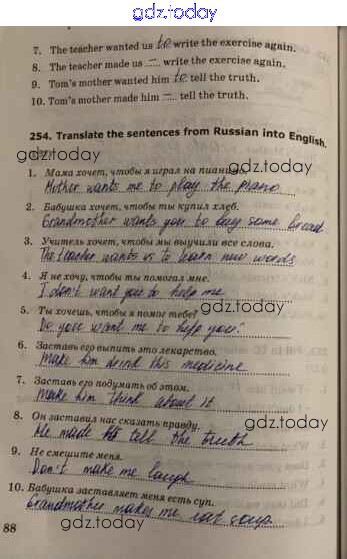 gdz.today
7. The teacher wanted us to write the exercise again.
8. The teacher made us — write the exercise again.
9. Tom's mother wanted him to tell the truth.
10. Tom's mother made him — tell the truth.
254. Translate the sentences from Russian into English.
gdz.today
gdz.today
1. Мама хочет, чтобы я играл на пианино.
Mother wants me to play the piano
2. Бабушка хочет, чтобы ты купил хлеб.
Grandmother wants you to buy some bread
gdz.today
3. Учитель хочет, чтобы мы выучили все слова.
The teacher wants us to learn new words
4. Я не хочу, чтобы ты помогал мне.
I don't want you to help me
gdz.today
5. Ты хочешь, чтобы я помог тебе?
Do you want me to help you?
6. Заставь его выпить это лекарство.
Make him drink this medicine
7. Заставь его подумать об этом.
Make him think about it
gdz.today
8. Он заставил нас сказать правду.
He made us tell the truth
gdz.today
9. Не смешите меня.
Don't make me laugh
10. Бабушка заставляет меня есть суп.
Grandmother makes me eat soup
88
gdz.today
gdz.today